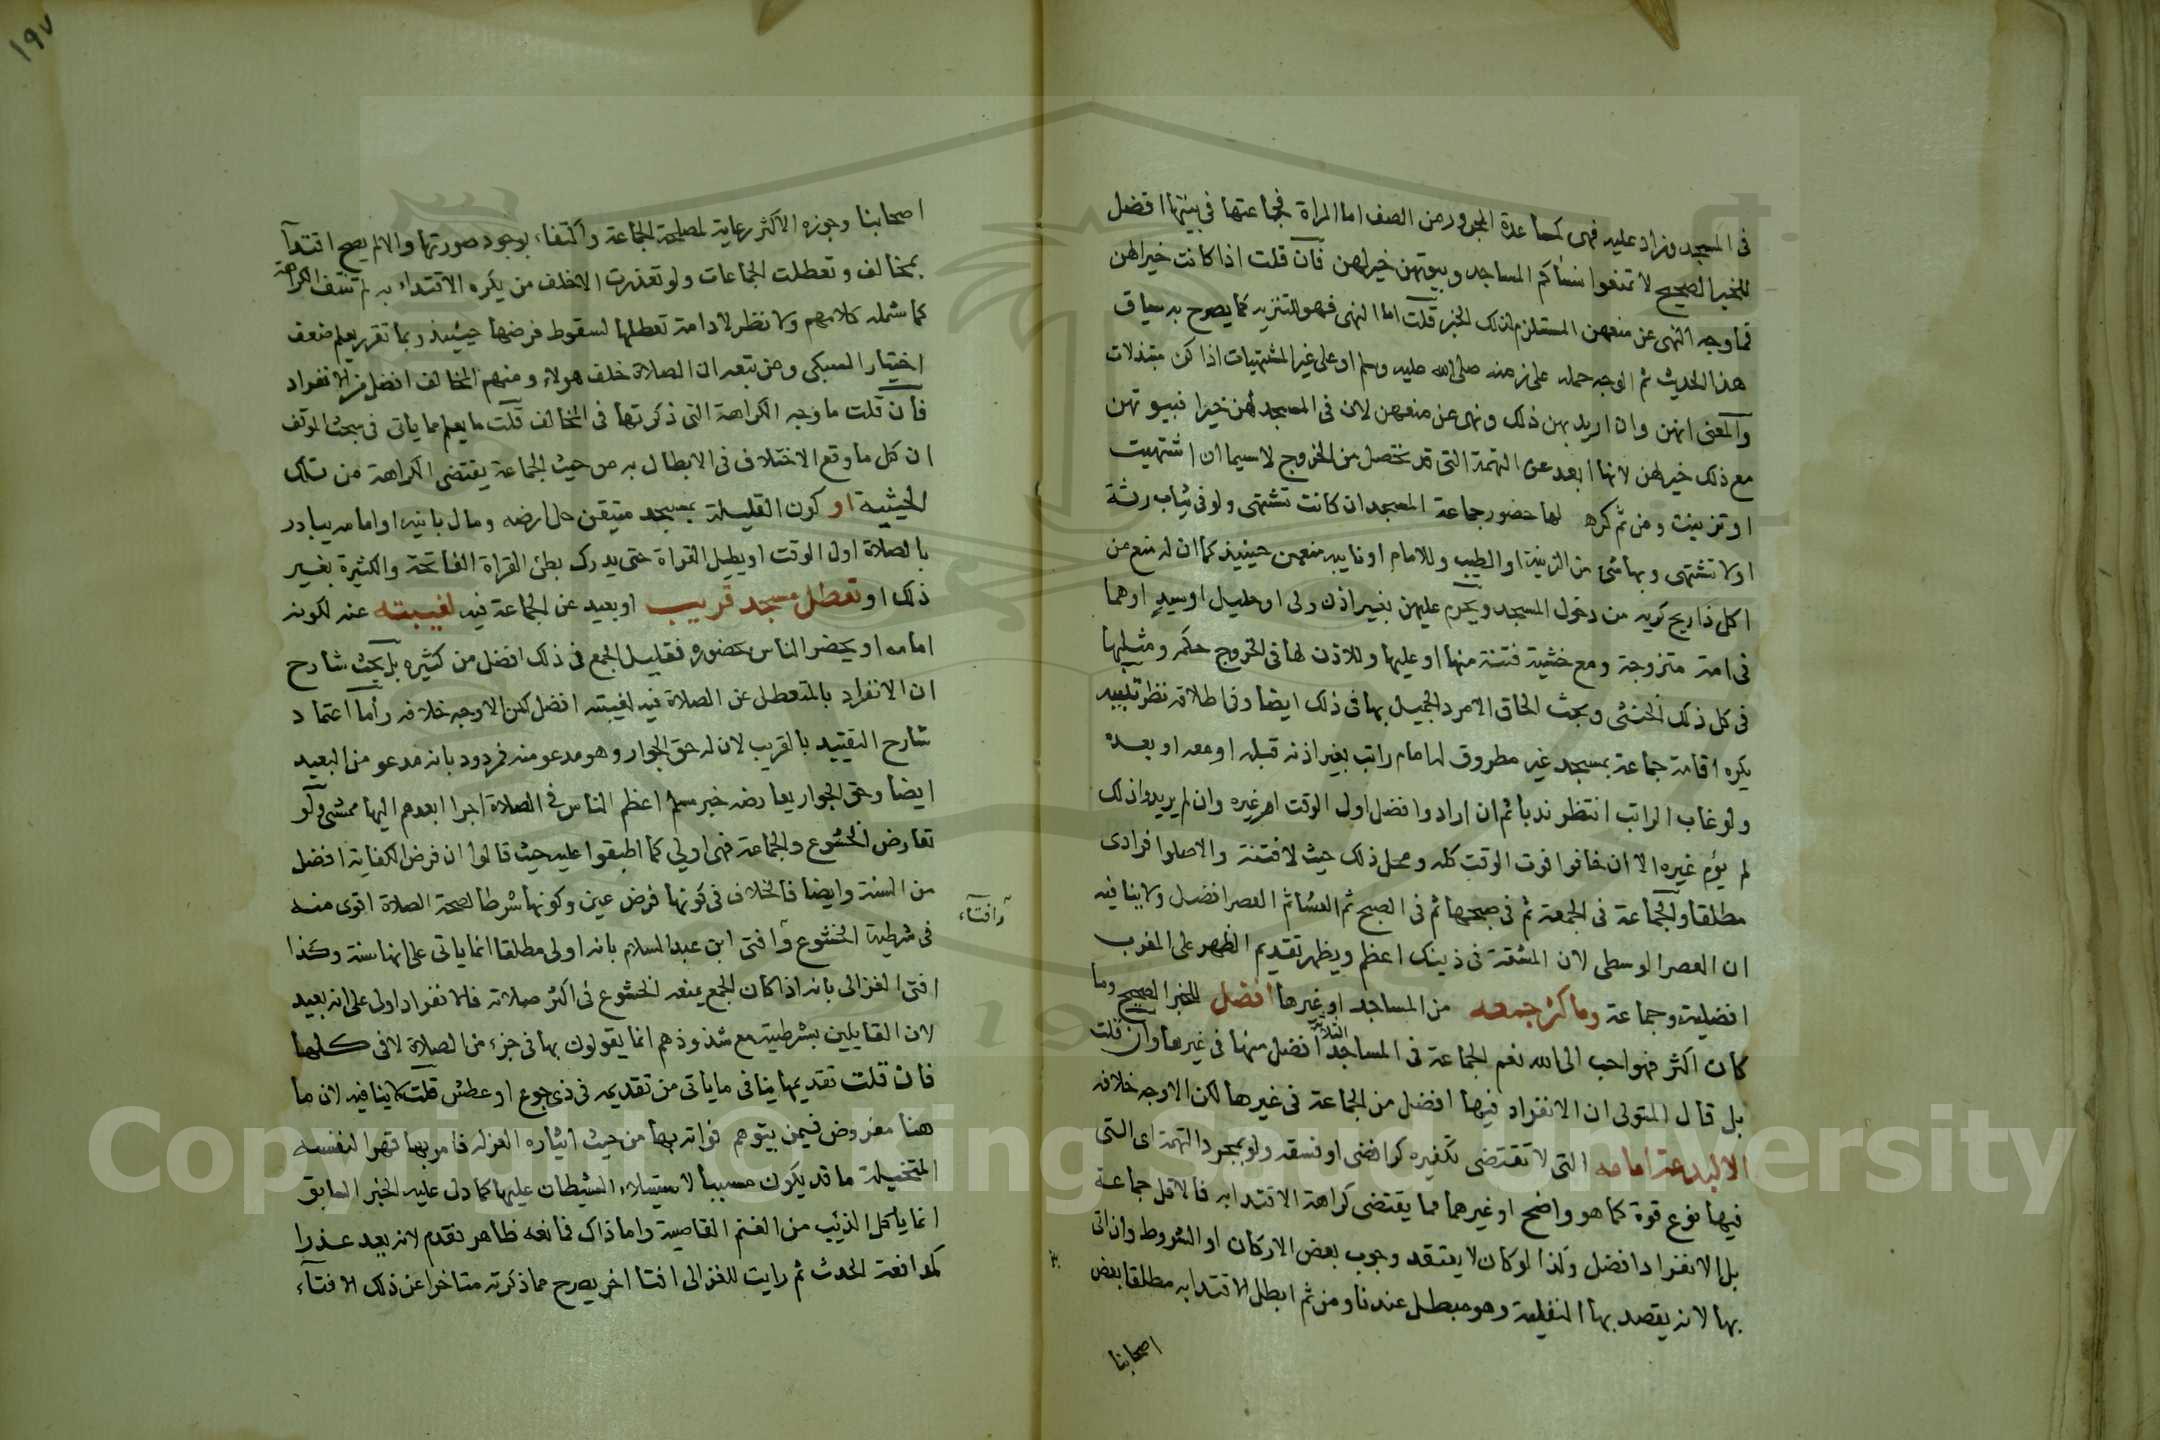 في المسجد وزاد عليه فهي كمساعدة المجرور من الصف اما المراة فجماعتها في بيتها افضل
للخبر الصحيح لا تمنعوا نساكم المساجد وبيوتهن خير لهن فان قلت اذا كانت خيرا لهن
فما وجه النهي عن منعهن المستلزم لذلك الخبر قلت اما النهي فهو للتنزيه كما يصرح به سياق
هذا الحديث ثم الوجه حمله على زمنه صلى الله عليه وسلم او على غير المشتهيات اذا كن مبتذلات
والمعنى انهن وان اريد بهن ذلك ونهي عن منعهن لان في المسجد لهن خيرا فبيوتهن
مع ذلك خير لهن لانها ابعد عن التهمة التي قد تحصل من الخروج لا سيما ان اشتهيت
او تزينت ومن ثم كره لها حضور جماعة المسجد ان كانت تشتهى ولو في ثياب رثة
او لا تشتهى وبها شئ من الزينة او الطيب وللامام او نايبه منعهن حينيذ كما ان له منع من
اكل ذا ريح كريه من دخول المسجد ويحرم عليهن بغير اذن ولي او حليل او سيد او هما
في امة متزوجة ومع خشية فتنة منها او عليها وللاذن لها في الخروج حكمه ومثلها
في كل ذلك الخنثى وبحث الحاق الامرد الجميل بها في ذلك ايضا وفي اطلاقه نظر تنبيه
يكره اقامة جماعة بمسجد غير مطروق له امام راتب بغير اذنه قبله او معه او بعده
ولو غاب الراتب انتظر ندبا ثم ان ارادوا فضل اول الوقت ام غيره وان لم يريدوا ذلك
لم يؤم غيره الا ان خافوا فوت الوقت كله ومحل ذلك حيث لا فتنة والا صلوا فرادى
مطلقا والجماعة في الجمعة ثم في صبحها ثم في الصبح ثم العشا ثم العصر افضل ولا ينافيه
ان العصر الوسطى لان المشقة في ذينك اعظم ويظهر تقديم الظهر على المغرب
افضلية وجماعة وما كثر جمعه من المساجد او غيرها افضل للخبر الصحيح وما
كان اكثر فهو احب الى الله نعم الجماعة في المساجد الثلاثة افضل منها في غيرها وان قلت
بل قال المتولي ان الانفراد فيها افضل من الجماعة في غيرها لكن الاوجه خلافه
الا لبدعة امامه التي لا تقتضي تكفيره كرافضي او فسقه ولو بمجرد التهمة اي التي
فيها نوع قوة كما هو واضح او غيرهما مما يقتضي كراهة الاقتدا به فالاقل جماعة
بل الانفراد افضل وكذا لو كان لا يعتقد وجوب بعض الاركان او الشروط وان اتى
بها لانه يقصد بها النفلية وهو مبطل عندنا ومن ثم ابطل الاقتدا به مطلقا بعض
اصحابنا
١٩٧
اصحابنا وجوزه الاكثر رعاية لمصلحة الجماعة واكتفاء بوجود صورتها والا لم يصح اقتدآ
بمخالف وتعطلت الجماعات ولو تعذرت الا خلف من يكره الاقتداء به لم تنتف الكراهة
كما شمله كلامهم ولا نظر لادامة تعطلها لسقوط فرضها حينئذ وبما تقرر يعلم ضعف
اختيار السبكي ومن تبعه ان الصلاة خلف هولاء ومنهم المخالف افضل من الانفراد
فان قلت ما وجه الكراهة التي ذكرتها في المخالف قلت ما يعلم مما ياتي في مبحث الموقف
ان كل ما وقع الاختلاف في الابطال به من حيث الجماعة يقتضي الكراهة من تلك
الحيثية او كون القليلة بمسجد متيقن حل ارضه ومال بانيه او امامه يبادر
بالصلاة اول الوقت او يطيل القراة حتى يدرك بطئ القراة الفاتحة والكثيرة بغير
ذلك او تعطل مسجد قريب او بعيد عن الجماعة فيه لغيبته عنه لكونه
امامه او يحضر الناس بحضوره فقليل الجمع في ذلك افضل من كثيره بل بحث شارح
ان الانفراد بالمتعطل عن الصلاة فيه لغيبته افضل لكن الاوجه خلافه وأما اعتماد
شارح التقييد بالقريب لان له حق الجوار وهو مدعو منه فمردود بانه مدعو من البعيد
ايضا وحق الجوار يعارضه خبر مسلم اعظم الناس في الصلاة اجرا ابعدهم اليها ممشى ولو
تعارض الخشوع والجماعة فهي اولى كما اطبقوا عليه حيث قالوا ان فرض الكفاية افضل
من السنة وايضا فالخلاف في كونها فرض عين وكونها شرطا لصحة الصلاة اقوى منه
في شرطية الخشوع وافتى ابن عبد السلام بانه اولى مطلقا انما ياتي على انها سنة وكذا
وافتآء
افتى الغزالي بانه اذا كان الجمع يمنعه الخشوع في اكثر صلاته فالانفراد اولى على انه بعيد
لان القايلين بشرطيته مع شذوذهم انما يقولون بها في جزء من الصلاة لا في كلها
فان قلت تقديمها ينافي ما ياتي من تقديمه في ذي جوع او عطش قلت لا ينافيه لان ما
هنا مفروض فيمن يتوهم فواته بها من حيث ايثاره العزلة فامر بها قهرا لنفسه
المتخيلة ما قد يكون سببا لاستيلاء الشيطان عليها كما دل عليه الخبر السابق
انما ياكل الذيب من الغنم القاصية واما ذاك فمانعه ظاهر تقدم لانه يعد عذرا
كمدافعة الحدث ثم رايت للغزالي افتا اخر يصرح مما ذكرته متاخرا عن ذلك الافتآء
Copyright © King Saud University